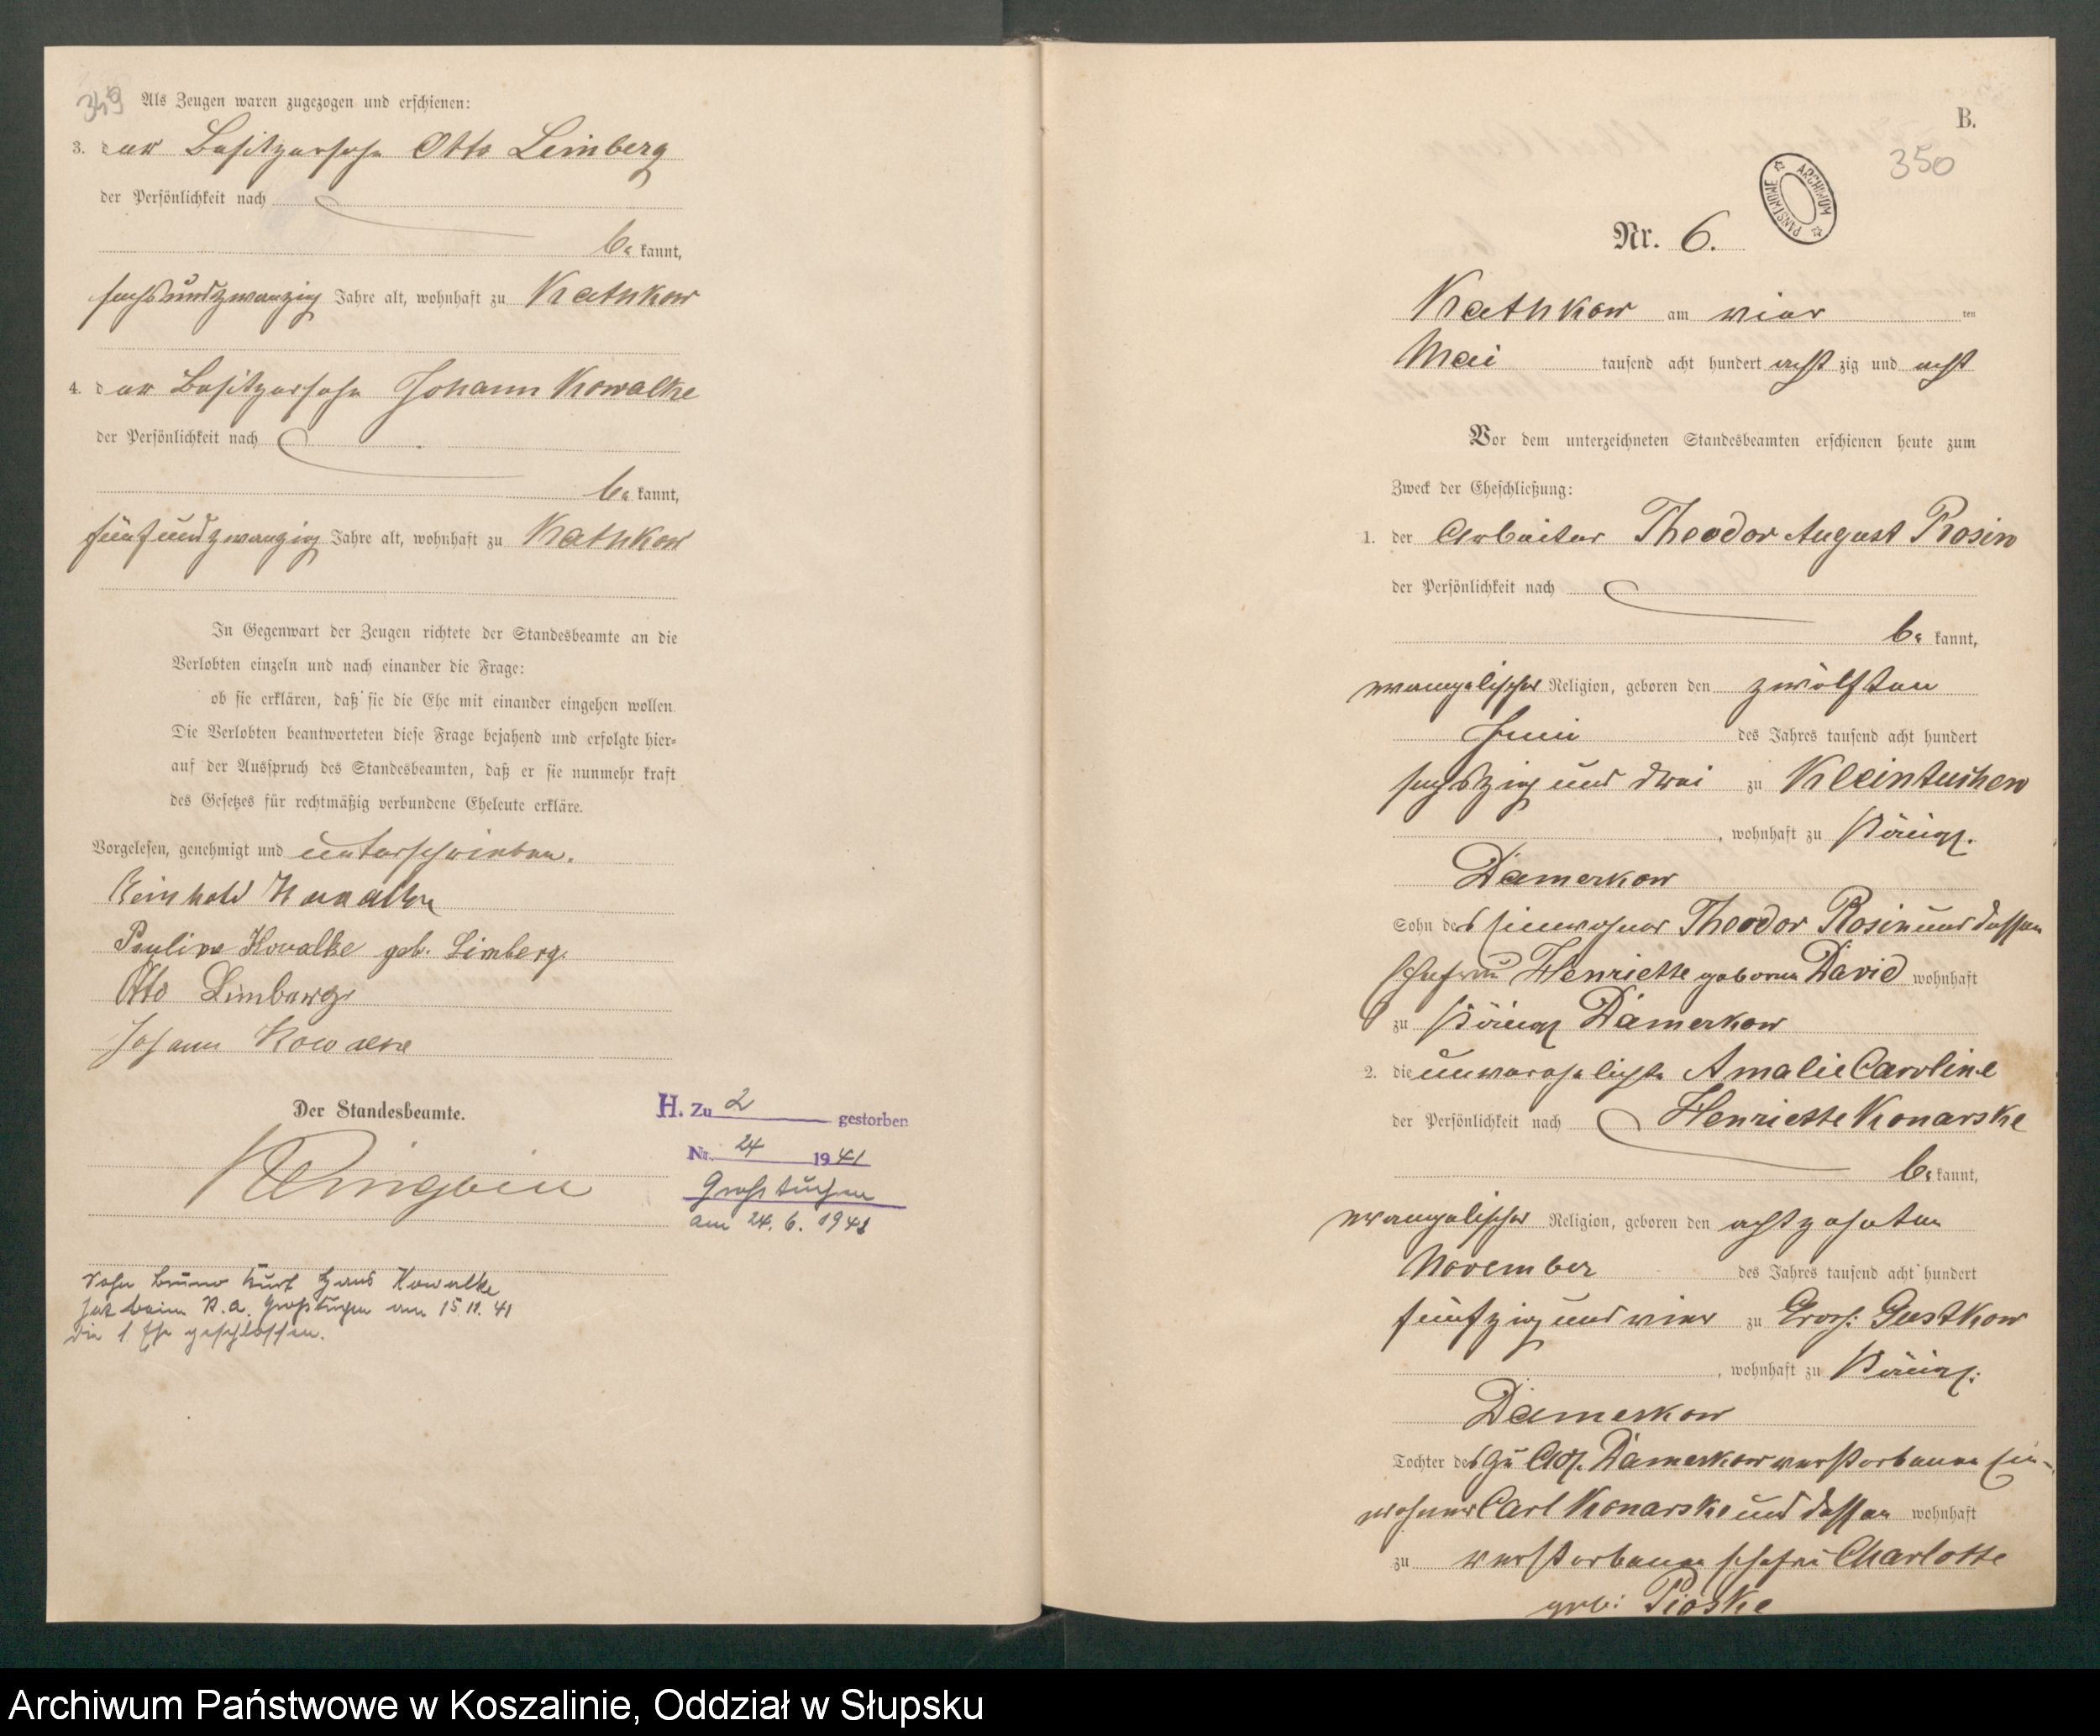 349 Als Zeugen waren zugezogen und erschienen:
3. der Besitzersohn Otto Limberg
der Persönlichkeit nach
be kannt,
sechsundzwanzig Jahre alt, wohnhaft zu Kathkow
4. der Besitzersohn Johann Kowalke
der Persönlichkeit nach
be kannt,
fünfundzwanzig Jahre alt, wohnhaft zu Kathkow
In Gegenwart der Zeugen richtete der Standesbeamte an die
Verlobten einzeln und nach einander die Frage:
ob sie erklären, daß sie die Ehe mit einander eingehen wollen.
Die Verlobten beantworteten diese Frage bejahend und erfolgte hier-
auf der Ausspruch des Standesbeamten, daß er sie nunmehr kraft
des Gesetzes für rechtmäßig verbundene Eheleute erkläre.
Vorgelesen, genehmigt und unterschrieben.
Reinhold Kowalke
Pauline Kowalke geb. Limberg.
Otto Limberg
Johann Kowalke
Der Standesbeamte.
H. Zu 2 gestorben
Nr. 24 1941
Groß Tuchen
am 24. 6. 1941
Sohn Bruno Kurt Hans Kowalke
hat beim St.A. Groß Tuchen am 15.11.41
die 1. Ehe geschlossen.
B.
350
ARCHIWUM PAŃSTWOWE
Nr. 6.
Kathkow am vier ten
Mai tausend acht hundert acht zig und acht
Vor dem unterzeichneten Standesbeamten erschienen heute zum
Zweck der Eheschließung:
1. der Arbeiter Theodor August Rosin
der Persönlichkeit nach
be kannt,
evangelischer Religion, geboren den zwölften
Juni des Jahres tausend acht hundert
sechszig und drei zu Kleintuchen
, wohnhaft zu Königl.
Damerkow
Sohn des Einwohner Theodor Rosin und dessen
Ehefrau Henriette geborne David wohnhaft
zu Königl Damerkow
2. die unverehelichte Amalie Caroline
der Persönlichkeit nach Henriette Konarske
be kannt,
evangelischer Religion, geboren den achtzehnten
November des Jahres tausend acht hundert
fünfzig und vier zu Gross: Gustkow
, wohnhaft zu Königl:
Damerkow
Tochter des zu Adl. Damerkow verstorbenen Ein-
wohner Carl Konarske und dessen wohnhaft
zu verstorbenen Ehefrau Charlotte
geb: Pioske
Archiwum Państwowe w Koszalinie, Oddział w Słupsku